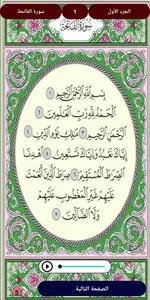 الجزء الأول 1 سورة الفاتحة
سورة الفاتحة
بسم الله الرحمن الرحيم ١
الحمد لله رب العالمين ٢
الرحمن الرحيم ٣ ملك يوم الدين ٤
إياك نعبد وإياك نستعين ٥ اهدنا
الصرط المستقيم ٦ صرط الذين أنعمت
عليهم غير المغضوب عليهم
ولا الضالين ٧
الصفحة التالية